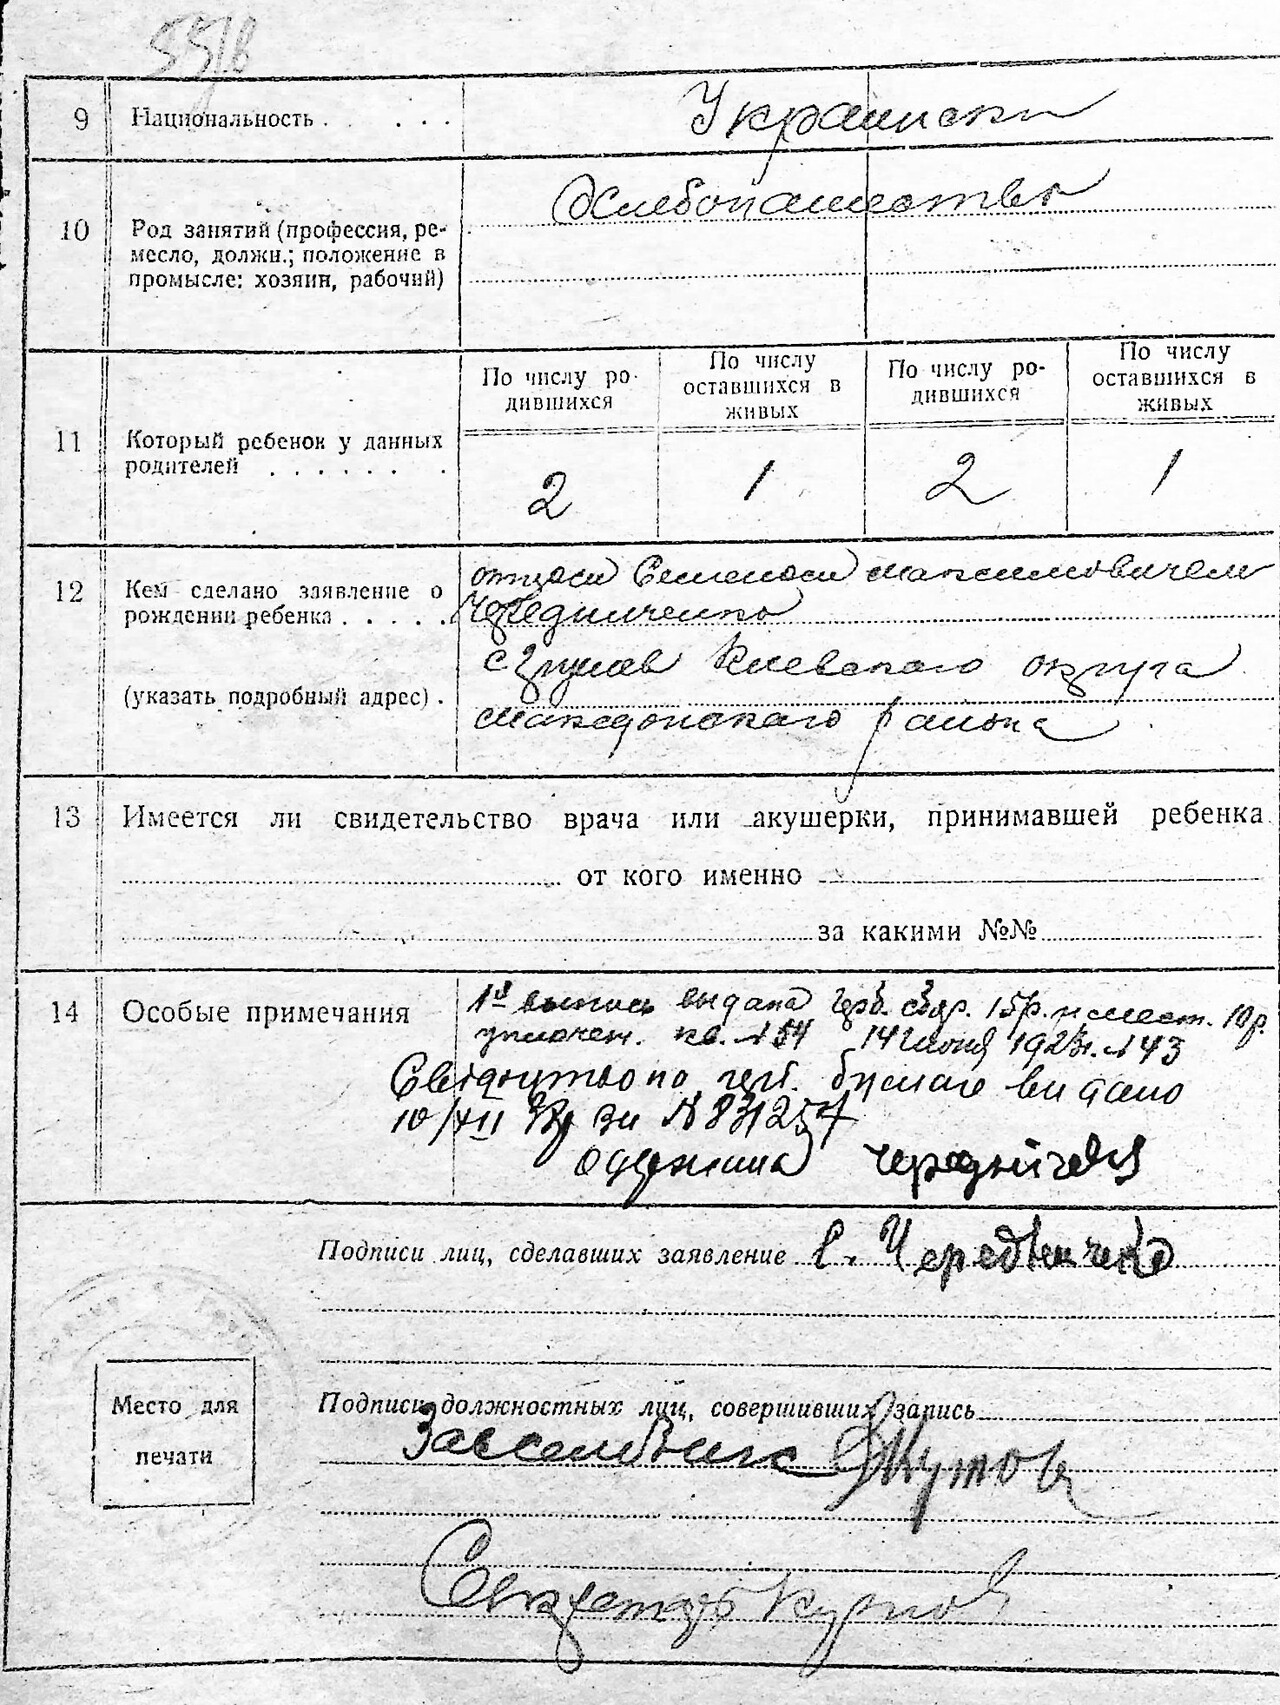 9 Национальность . . . . .
Украински
10 Род занятий (профессия, ре-
месло, должн.; положение в
промысле: хозяин, рабочий)
Хлебопашество
11 Который ребенок у данных
родителей . . . . . . . .
По числу ро-
дившихся
По числу
оставшихся в
живых
По числу ро-
дившихся
По числу
оставшихся в
живых
2 1 2 1
12 Кем сделано заявление о
рождении ребенка . . . . .
(указать подробный адрес) .
отцом Семеном Максимовичем
Чередниченко
с Киевского округа
Македонского района
13 Имеется ли свидетельство врача или акушерки, принимавшей ребенка
от кого именно
за какими №№
14 Особые примечания
1я выпись выдана герб. сбор. 15р. и мест. 10р.
уплочен. кв. №54 14 июня 1923г. №43
видано
10/XII за №
одержала
Подписи лиц, сделавших заявление С. Чередниченко
Подписи должностных лиц, совершивших запись
Место для
печати
Секретарь